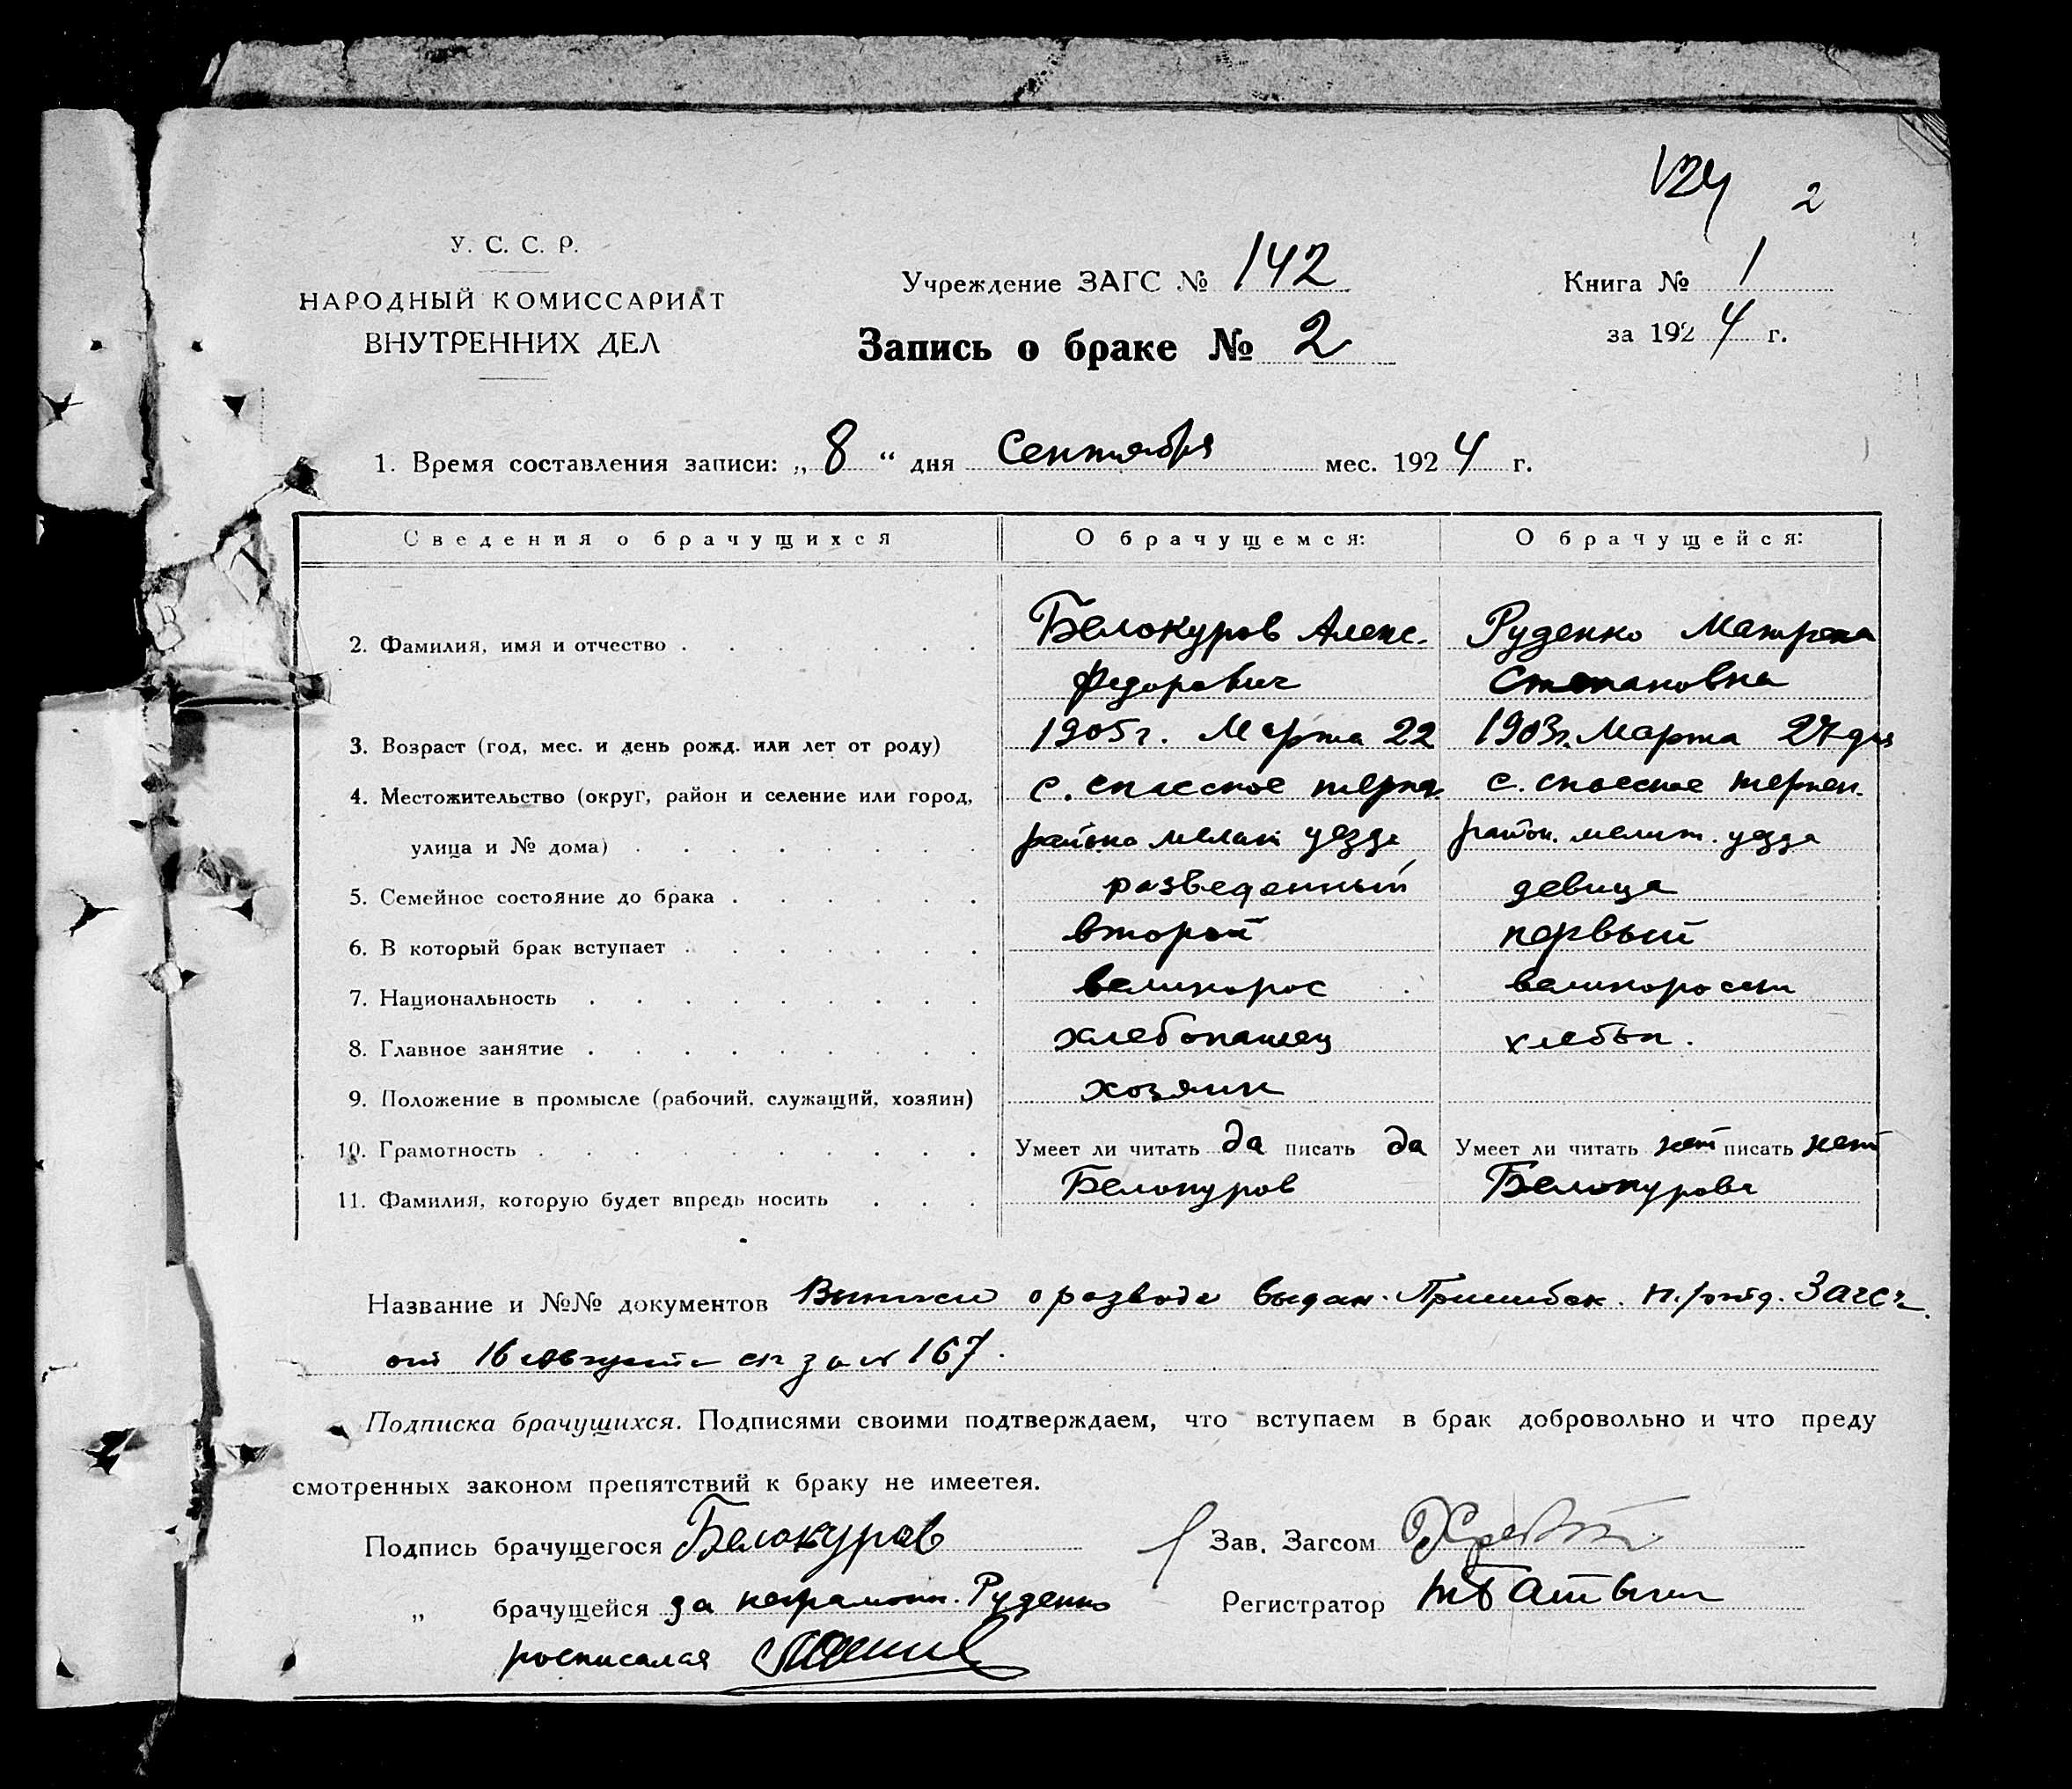 124 2
У. С. С. Р.
НАРОДНЫЙ КОМИССАРИАТ
ВНУТРЕННИХ ДЕЛ
Учреждение ЗАГС № 142
Книга № 1
за 1924 г.
Запись о браке № 2
1. Время составления записи: „ 8 “ дня Сентября мес. 1924 г.
Сведения о брачущихся О брачущемся: О брачущейся:
2. Фамилия, имя и отчество Белокуров Алекс. Руденко Матрена
Федорович Степановна
3. Возраст (год, мес. и день рожд. или лет от роду) 1905 г. Марта 22 1903 г. Марта 27 дня
4. Местожительство (округ, район и селение или город, с. спасское терпен. с. спасское терпен.
улица и № дома) района мелит уезда район. мелит. уезда
5. Семейное состояние до брака разведенный девица
6. В который брак вступает второй первый
7. Национальность великорос великоросски
8. Главное занятие хлебопашец хлебоп.
9. Положение в промысле (рабочий, служащий, хозяин) хозяин
10. Грамотность Умеет ли читать да писать да Умеет ли читать нет писать нет
11. Фамилия, которую будет впредь носить Белокуров Белокурова
Название и №№ документов Выписи о разводе выдан. Пришибск. п/отд. Загсе
от 16 августа за № 167.
Подписка брачущихся. Подписями своими подтверждаем, что вступаем в брак добровольно и что преду
смотренных законом препятствий к браку не имеетея.
Подпись брачущегося Белокуров
Зав. Загсом
„ брачущейся за неграмотн. Руденко
Регистратор
росписалая